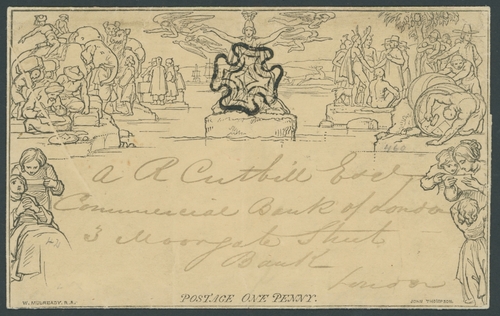 460
A R Cutbill Esqr
Commercial Bank of London
3 Moorgate Street
Bank
London
POSTAGE ONE PENNY.
W. MULREADY. R.A.
JOHN THOMPSON